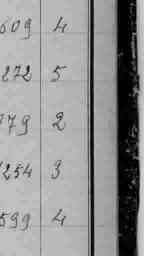 609 4
272 5
779 2
254 3
599 4